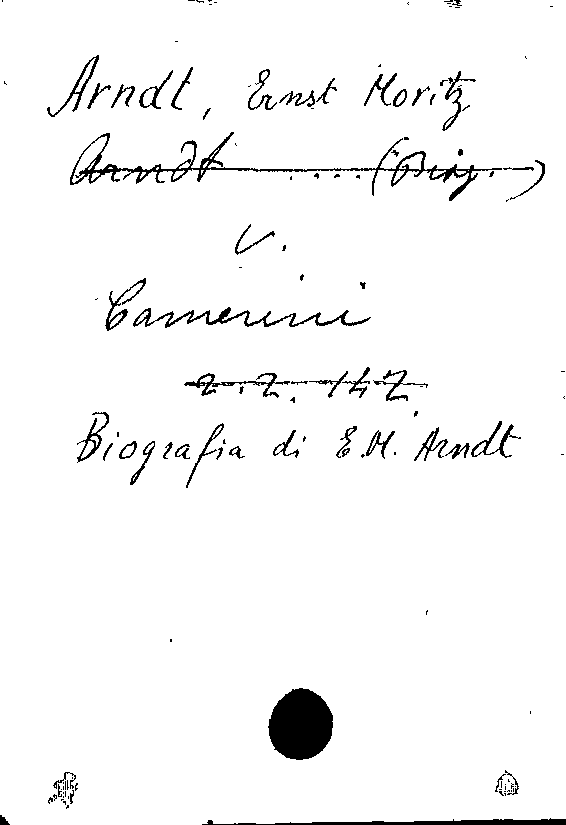 Arndt, Ernst Moritz
Arndt .... (Biog.)
V.
Camerini
2.2.147.
Biografia di E.M. Arndt